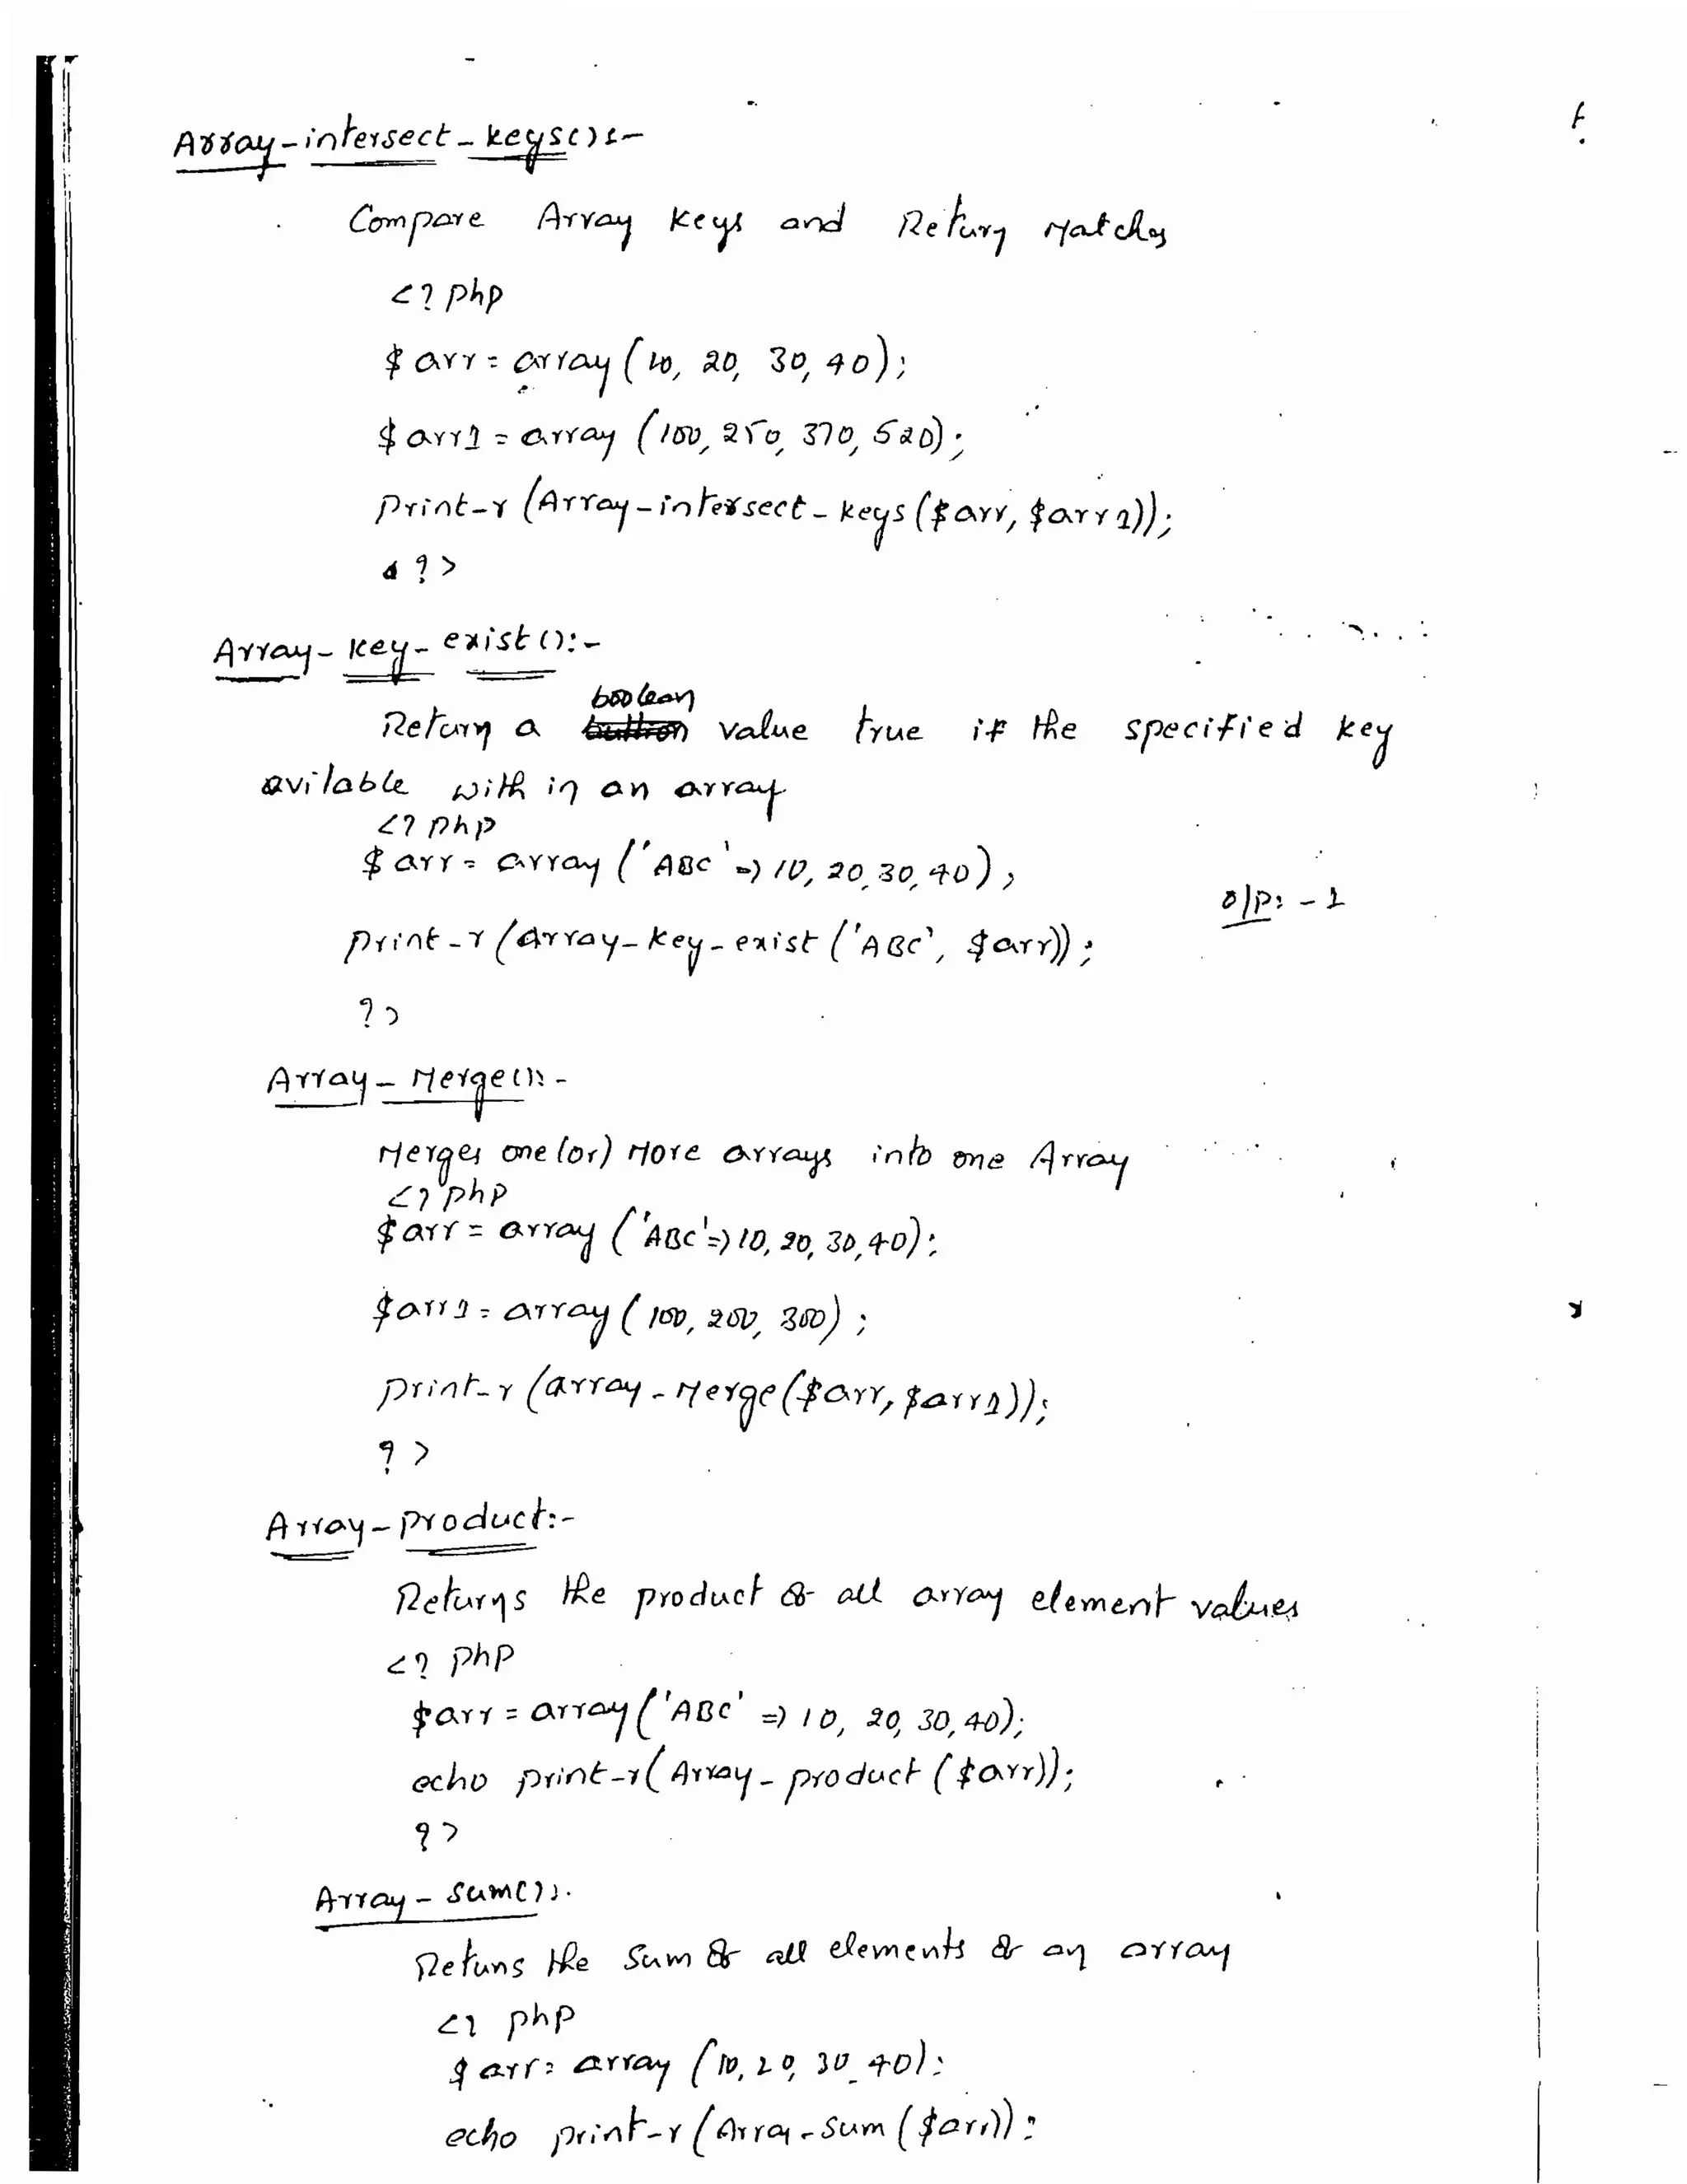 Array-intersect-keys():-
Compare Array keys and Return Matches
<?php
$arr = array (10, 20, 30, 40);
$arr1 = array (100, 250, 370, 520);
print-r (Array-intersect-keys ($arr, $arr1));
?>
Array-key-exist():-
boolean
Return a value true if the specified key
avilable with in an array
<?php
$arr = array ('ABC' => 10, 20, 30, 40);
o/p:-1
print-r (array-key-exist ('ABC', $arr));
?>
Array-Merge():-
Merges one (or) More arrays into one Array
<?php
$arr = array ('ABC' => 10, 20, 30, 40);
$arr1 = array (100, 200, 300);
print-r (array-Merge ($arr, $arr1));
?>
Array-product:-
Returns the product of all array element values
<? php
$arr = array ('ABC' => 10, 20, 30, 40);
echo print-r (Array-product ($arr));
?>
Array-sum():
Retuns the sum of all elements of an array
<? php
$arr = array (10, 20, 30, 40);
echo print-r (Array-sum ($arr));